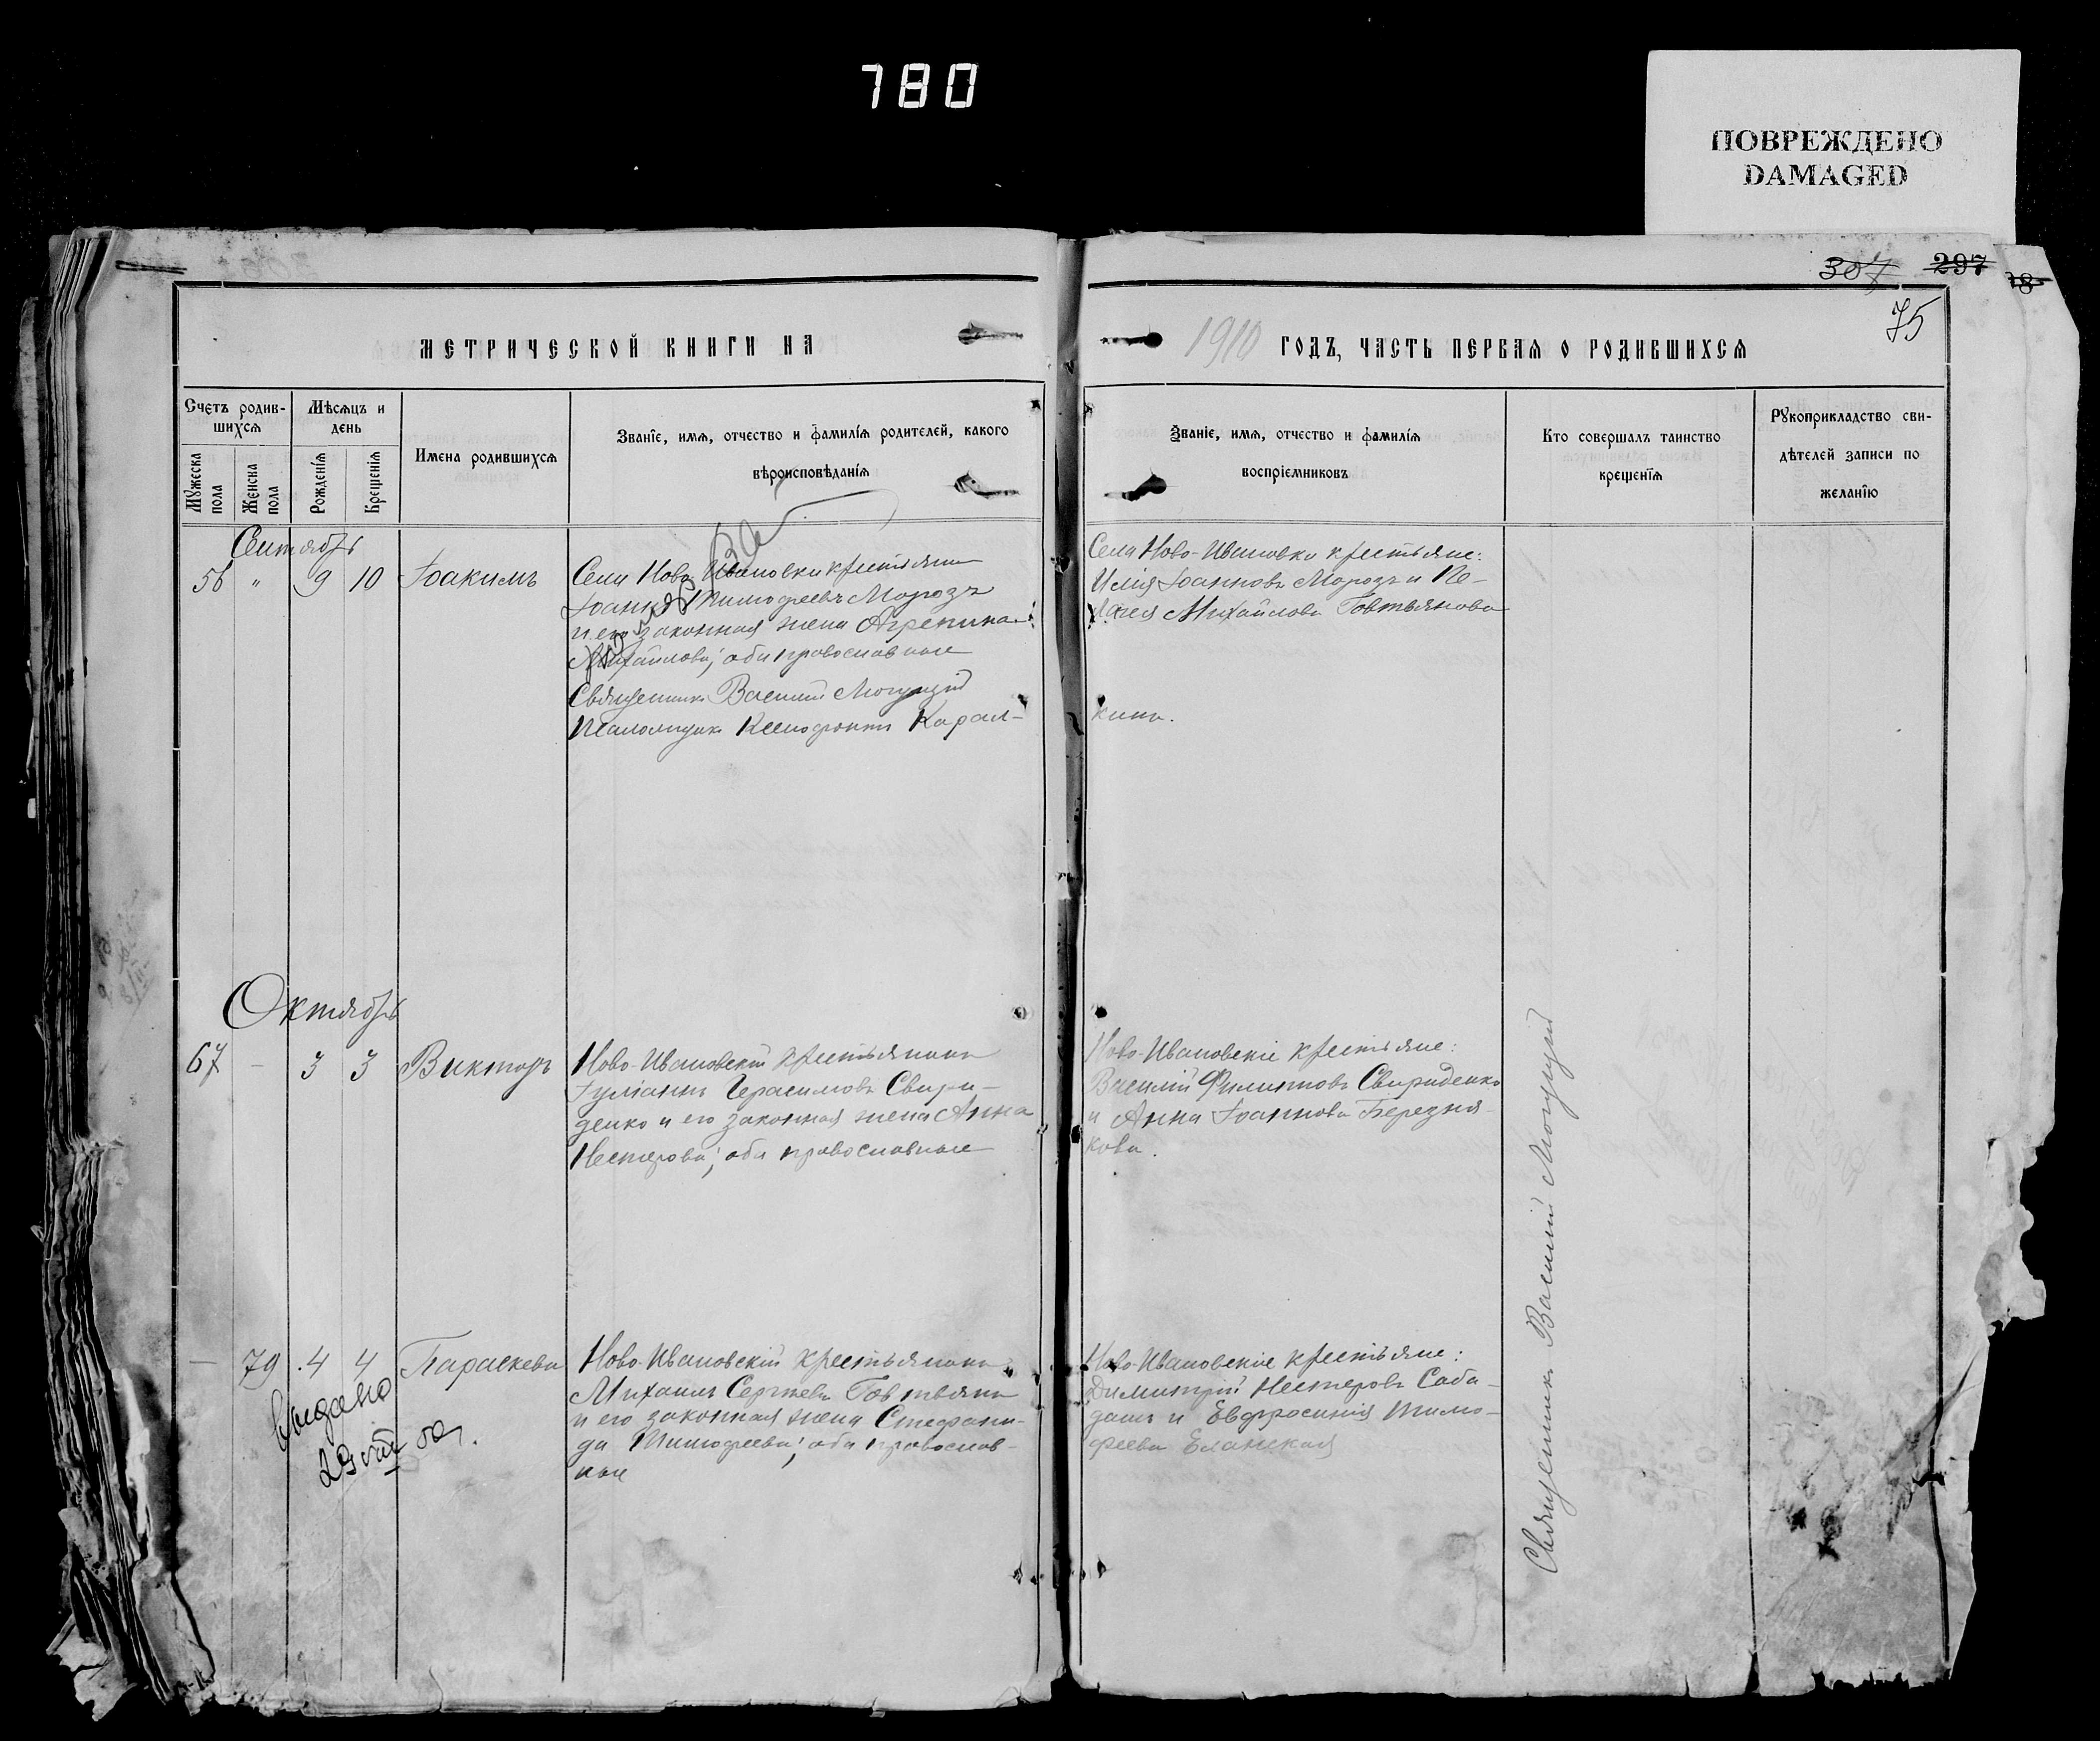 780
ПОВРЕЖДЕНО
DAMAGED
307 297
75
МЕТРИЧЕСКОЙ КНИГИ НА
1910 ГОДЪ, ЧАСТЬ ПЕРВАЯ О РОДИВШИХСЯ
Счетъ родив-
шихся
Мужеска пола
Женска пола
Мѣсяцъ и
день
Рожденія
Крещенія
Имена родившихся
Званіе, имя, отчество и фамилія родителей, какого
вѣроисповѣданія
Званіе, имя, отчество и фамилія
воспріемниковъ
Кто совершалъ таинство
крещенія
Рукоприкладство сви-
дѣтелей записи по
желанію
Сентябрь
56 " 9 10 Іоакимъ
Села Ново-Ивановки крестьянинъ
Іоаннъ Тимофеевъ Морозъ
и его законная жена Агрепина
Михайлова; оба православные
Священникъ Василій Могущій
Псаломщикъ Ксенофонтъ Карал-
Села Ново-Ивановки крестьяне:
Илія Іоанновъ Морозъ и Пе-
лагея Михайлова Говтвянова
кинъ.
Октябрь
67 - 3 3 Викторъ
Ново-Ивановскій крестьянинъ
Іуліанъ Герасимовъ Свири-
денко и его законная жена Анна
Нестерова; оба православные
Ново-Ивановскіе крестьяне:
Василій Филиповъ Свириденко
и Анна Іоаннова Березня-
кова.
- 79 4 4 Параскева
Ново-Ивановскій крестьянинъ
Михаилъ Сергеевъ Говтвянъ
и его законная жена Стефани-
да Тимофеева; оба православ-
ные
Ново-Ивановскіе крестьяне:
Димитрій Нестеровъ Саба-
дашъ и Евфросинія Тимо-
феева Еланская
выдано
Священникъ Василій Могущій